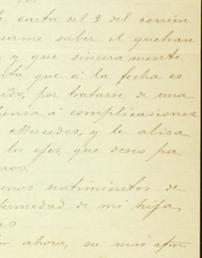 carta del 8 del corrien
erme saber el quebran
y que sinceramente
que á la fecha es
ido, por tratarse de una
á complicaciones
Mercedes, y le alisa
que deseo pa
enos sentimientos de
fermedad de mi hija,
as
or ahora, su mas afm